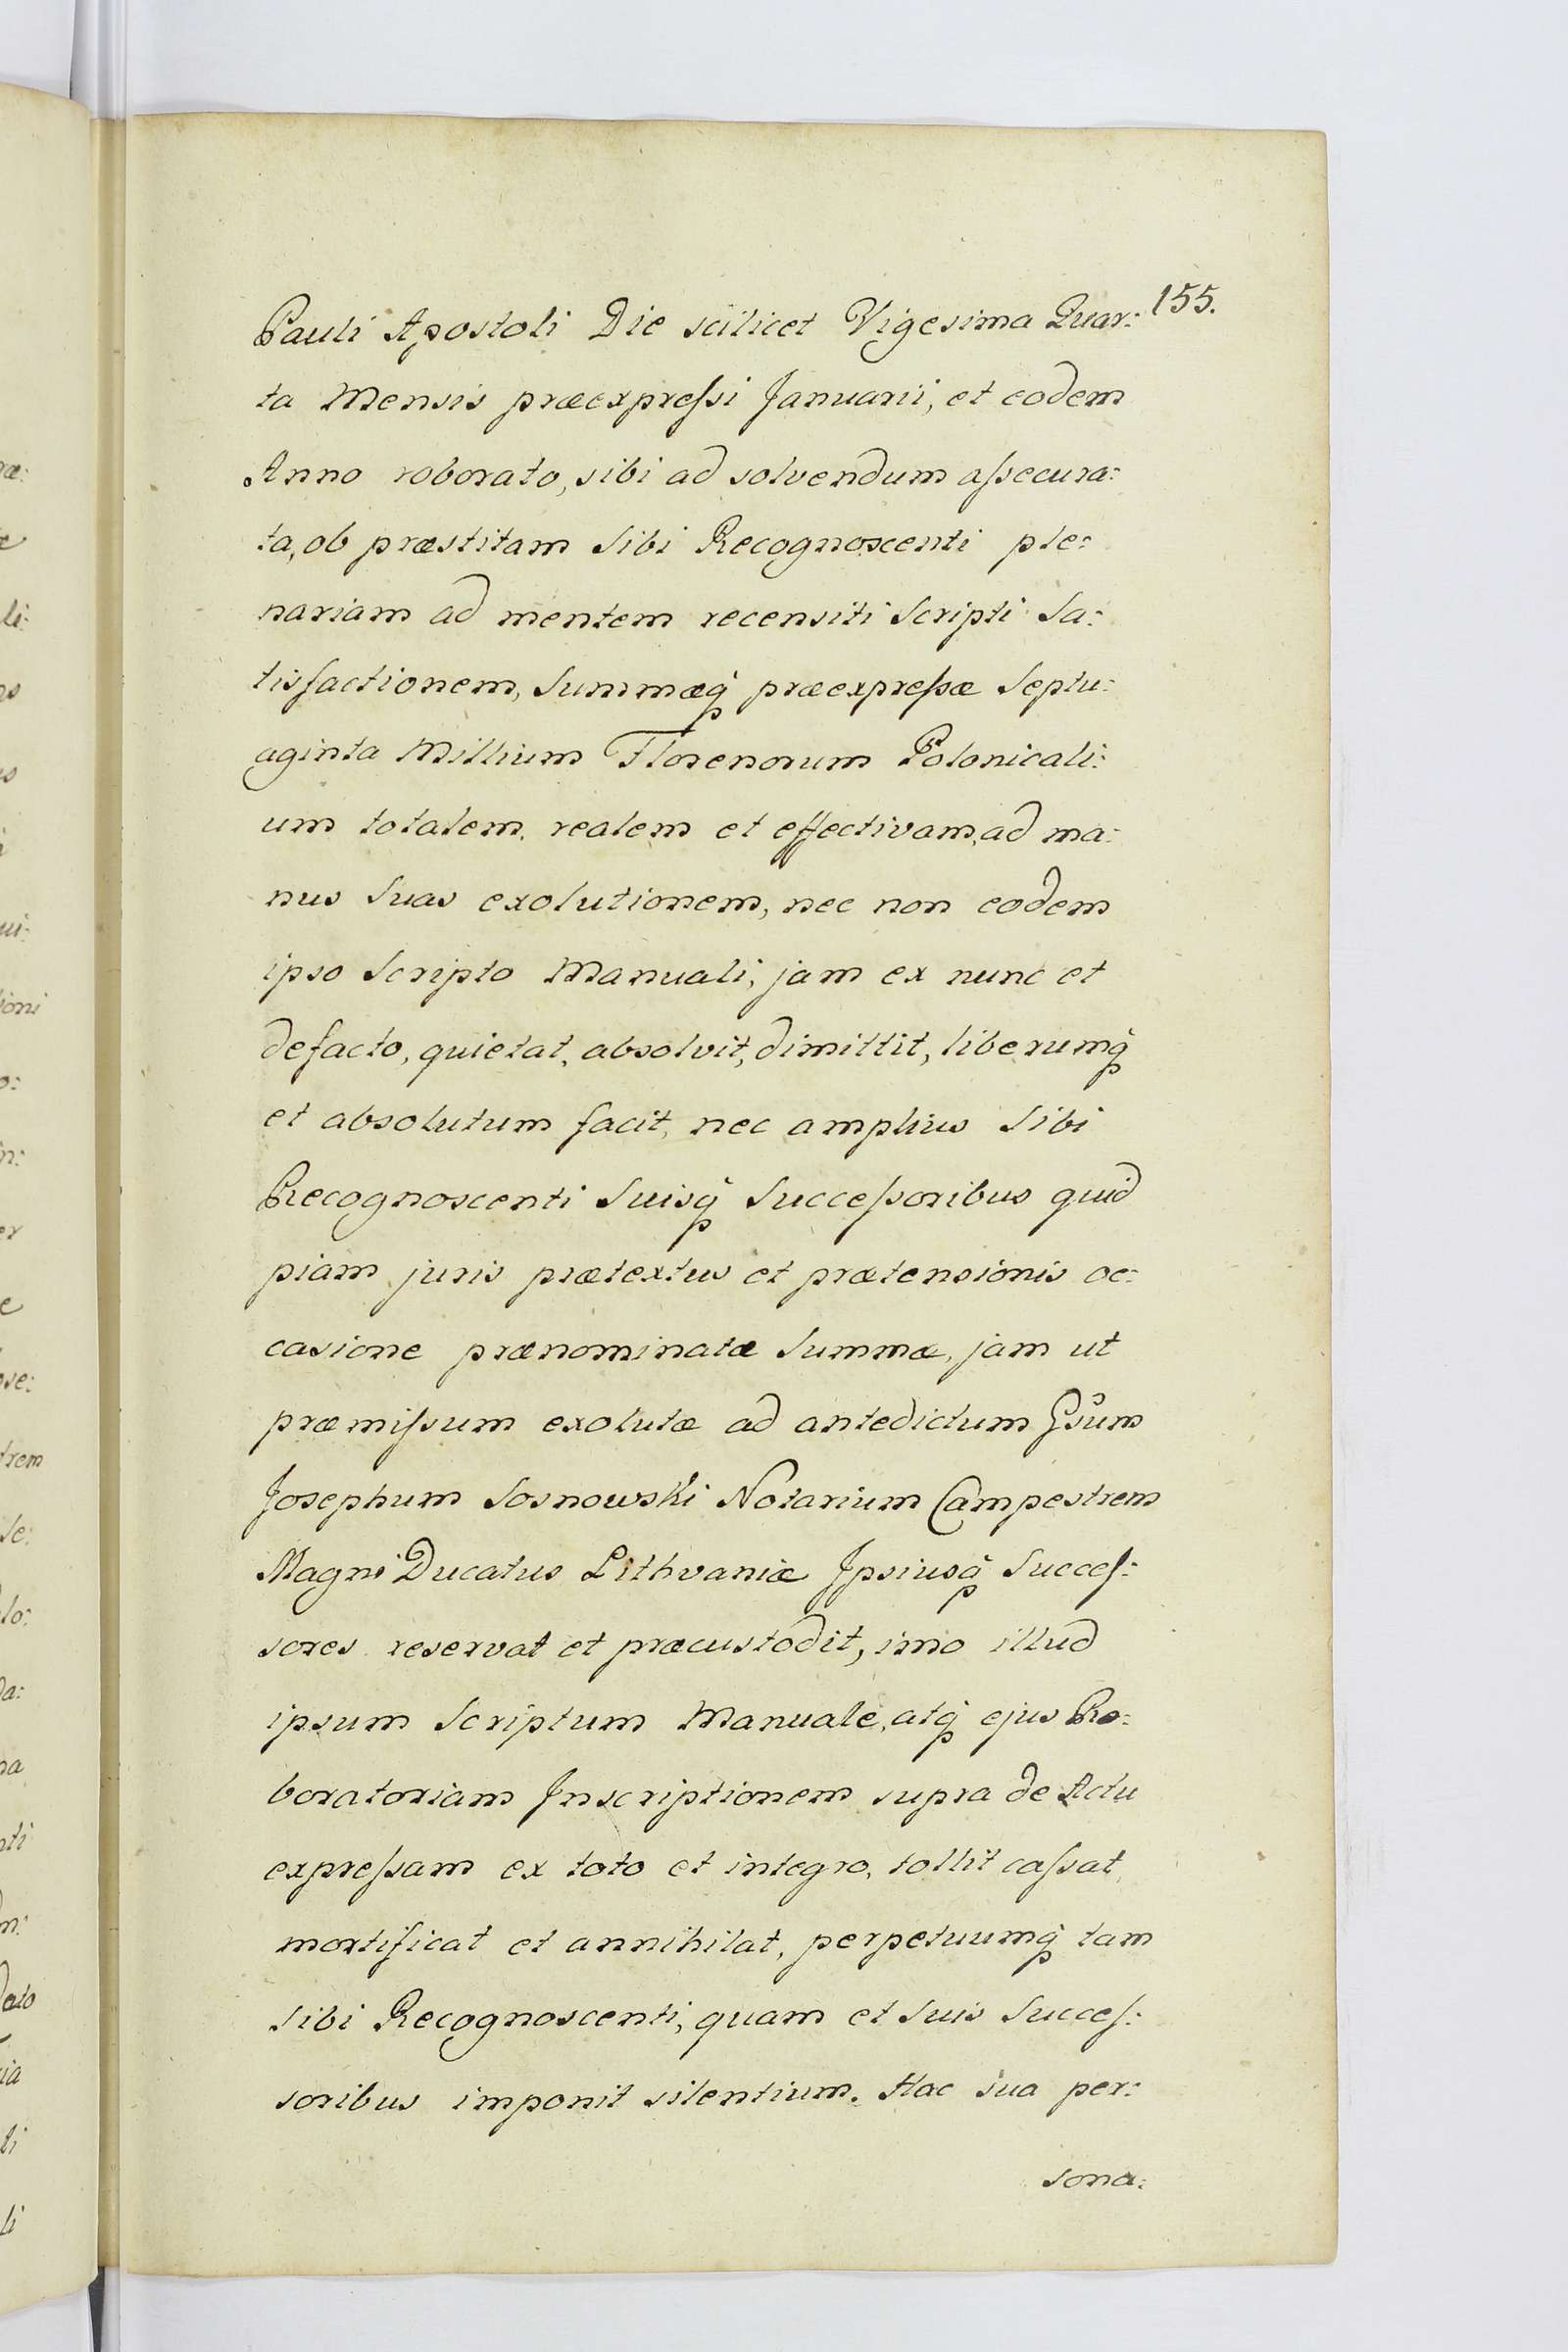 155.
Pauli Apostoli Die scilicet Vigesima Quar:
ta Mensis præexpreſsi Januarii, et eodem
Anno roborato, sibi ad solvendum aſsecura:
ta, ob præstitam Sibi Recognoscenti ple:
nariam ad mentem recensiti Scripti Sa:
tisfactionem, Summæq̃ præexpreſsæ Septu:
aginta Millium Florenorum Polonicali:
um totalem, realem et effectivam, ad ma:
nus Suas exolutionem, nec non eodem
ipso Scripto Manuali, jam ex nunc et
defacto, quietat, absolvit, dimittit, liberumq̃
et absolutum facit, nec amplius Sibi
Recognoscenti Suisq̃ Succeſsoribus quid
piam juris prætextus et prætensionis oc:
casione prænominatæ Summæ, jam ut
præmiſsum exolutæ ad antedictum Gsum
Josephum Sosnowski Notarium Campestrem
Magni Ducatus Lithvaniæ Ipsiusq̃ Succeſ:
sores reservat et præcustodit, imo illud
ipsum Scriptum Manuale, atq̃ ejus Ro:
boratoriam Inscriptionem supra de Actu
expreſsam ex toto et integro, tollit caſsat,
mortificat et annihilat, perpetuumq̃ tam
Sibi Recognoscenti, quam et Suis Succeſ:
soribus imponit silentium. Hac sua per:
sona: